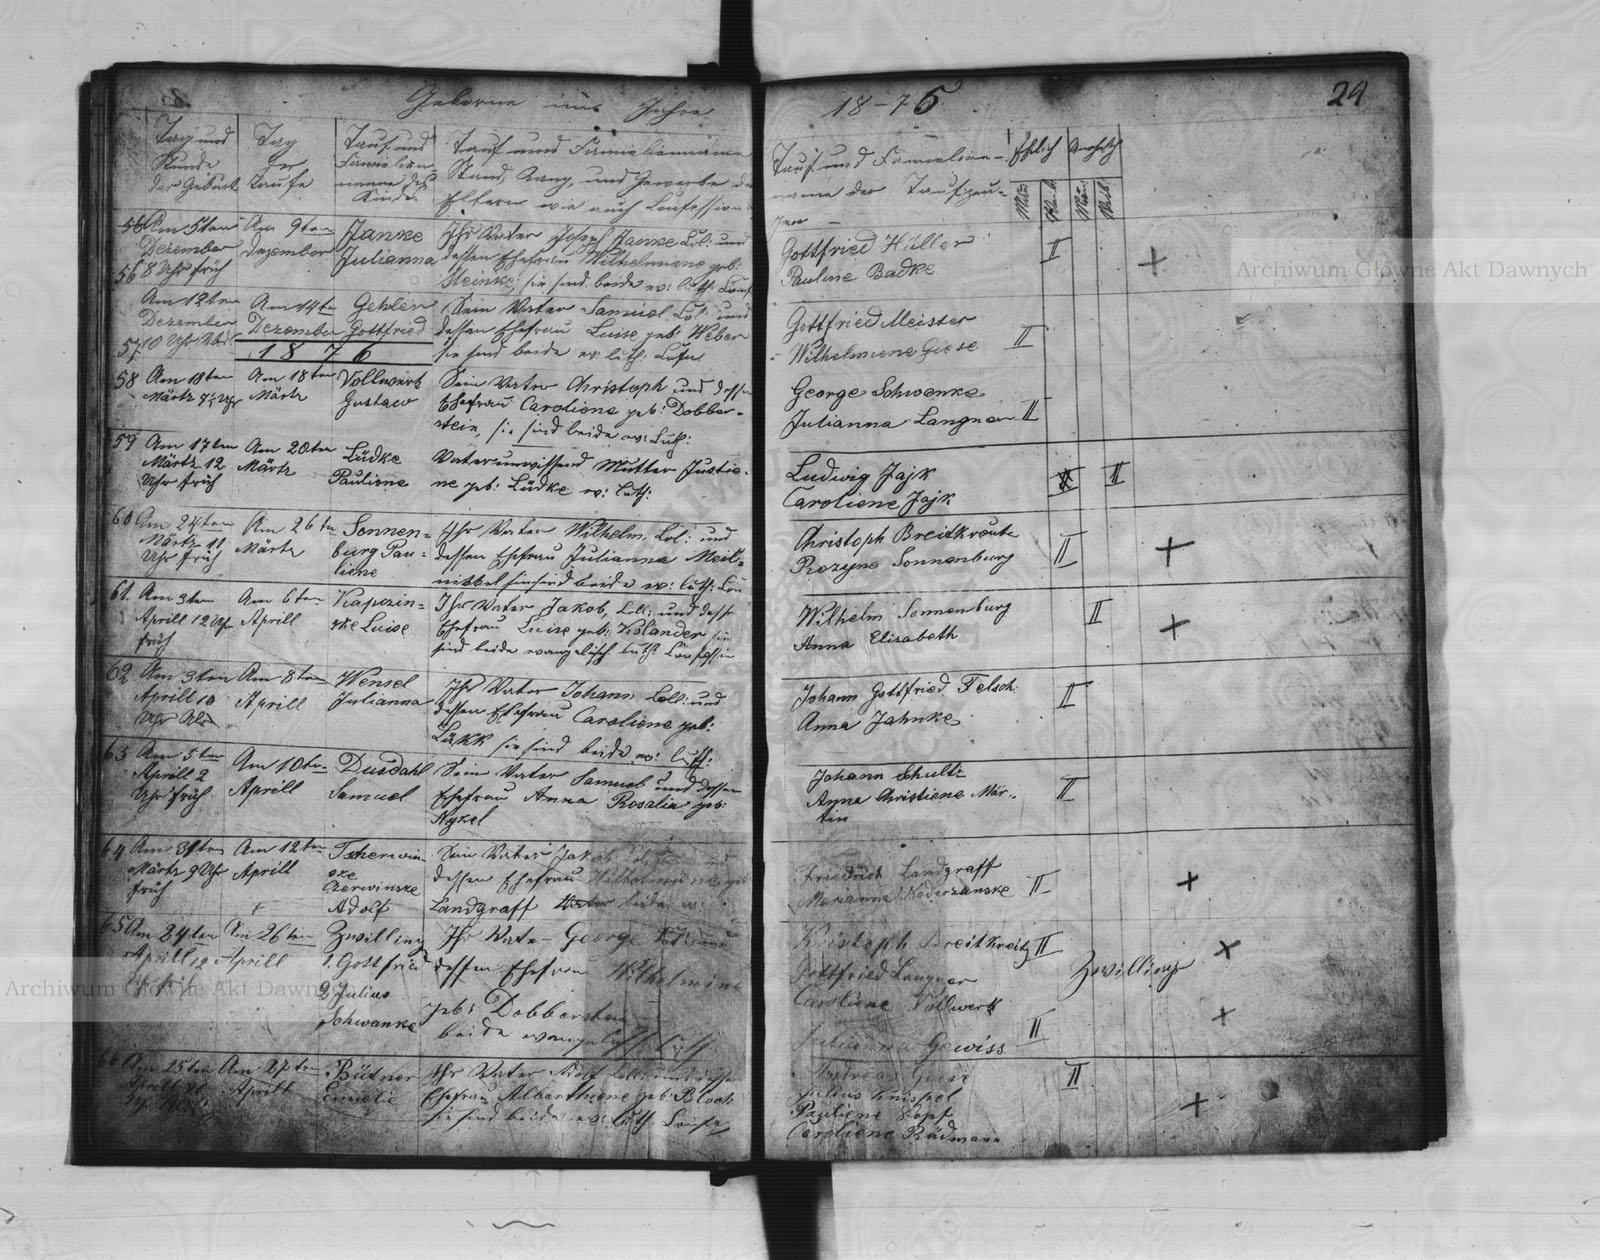 Geborne im Jahre
18-75
29
Tag und
Stunde
der Geburt
Tag
der
Taufe
Tauf und
Familien-
name des
Kindes
Tauf und Familienname
Stand, Rang, und Gewerbe der
Eltern wie auch Confession
Tauf und Familien-
name der Taufzeu-
gen
Ehlich
Unehlich
56 Am 5ten
Dezember
56 8 Uhr früh
Am 9ten
Dezember
Janke
Julianna
Ihr Vater Joseph Janke Col: und
dessen Ehefrau Wilhelmiene geb:
Steinke, sie sind beide ev: luth: Conf
Gottfried Hüller
Pauline Badke
II
Am 12ten
Dezember
57 10 Uhr Abds
Am 14ten
Dezember
Gehlen
Gottfried
Sein Vater Samuel Col: und
dessen Ehefrau Luise geb: Weber
sie sind beide ev: luth: Conf
Gottfried Meister
Wilhelmiene Giese
II
1876
58 Am 18ten
Märtz
Am 18ten
Märtz
Vollwerk
Gustaw
Sein Vater Christoph und dessen
Ehefrau Caroliene geb: Dobber-
stein, sie sind beide ev: Luth:
George Schwanke
Julianna Langner
II
59 Am 17ten
Märtz 12
Uhr früh
Am 20ten
Märtz
Lüdke
Pauliene
Vater unwissend Mutter Justie-
ne geb: Lüdke ev: luth:
Ludwig Jajk
Caroliene Jajk
II
60 Am 24ten
Märtz 11
Uhr früh
Am 26ten
Märtz
Sonnen-
burg Pau-
liene
Ihr Vater Wilhelm Col: und
dessen Ehefrau Julianna
sie sind beide ev: luth: Con
Christoph Breitkreutz
Rozyne Sonnenburg
II
61. Am 3ten
Aprill 12 Uhr
früh
Am 6ten
Aprill
Kapezin-
ske Luise
Ihr Vater Jakob, Col: und dessen
Ehefrau Luise geb: Kolander sie
sind beide evangelisch luth: Confession
Wilhelm Sonnenburg
Anna Elisabeth
II
62 Am 3ten
Aprill 10
Uhr Abds
Am 8ten
Aprill
Wensel
Julianna
Ihr Vater Johann Col: und
dessen Ehefrau Caroliene geb:
sie sind beide ev: luth:
Johann Gottfried Felsch
Anna Jahnke
II
63 Am 5ten
Aprill 2
Uhr früh
Am 10ten
Aprill
Dusdahl
Samuel
Sein Vater Samuel und dessen
Ehefrau Anna Rosalia geb:
Nykel
Johann Schultz
Anna Christiene Mär-
tin
II
64 Am 31ten
Märtz 9 Uhr
früh
Am 12ten
Aprill
Tscherwin-
ske
Czerwinske
Adolf
Sein Vater Jakob
dessen Ehefrau Wilhelmiene geb
Landgraff beide ev:
Friedrich Landgraff
Marianna
II
65 Am 24ten
Aprill 12
Am 26ten
Aprill
Zwilling
1. Gottfried
2 Julius
Schwanke
Ihr Vater George
dessen Ehefrau Wilhelmine
geb: Dobberstein
beide evangelisch luth:
Kristoph Breitkreitz
Gottfried Langner
Caroliene Vollwerk
Julianna Gewiss
II
II
Zwilling
66 Am 25ten
Am 27ten
Aprill
Bütner
Emielie
Ihr Vater Adolf Col: und dessen
Ehefrau Alberthiene geb: Block
sie sind beide ev: luth Confes
Andreas Giese
Julius Knispel
Pauliene Zopf
Caroliene Rädmann
II
Archiwum Główne Akt Dawnych
Archiwum Główne Akt Dawnych